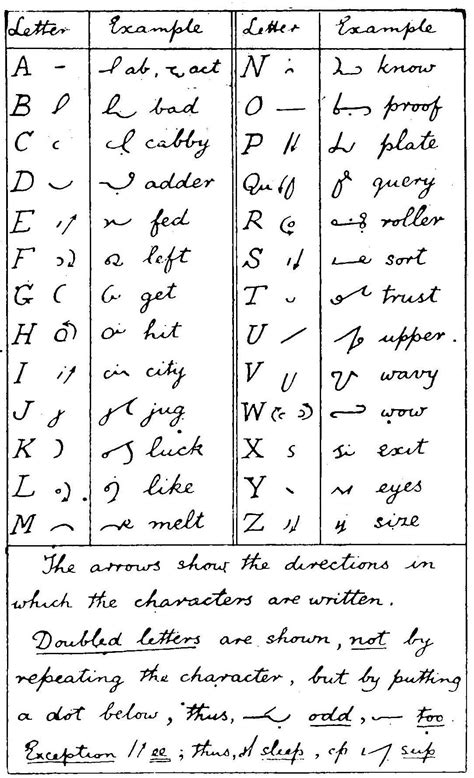 Letter Example Letter Example
A ab, act N know
B bad O proof
C cabby P plate
D adder Qu query
E fed R roller
F left S sort
G get T trust
H hit U upper.
I city V wavy
J jug W wow
K luck X exit
L like Y eyes
M melt Z size
The arrows show the directions in
which the characters are written.
Doubled letters are shown, not by
repeating the character, but by putting
a dot below, thus, odd, too.
Exception ee; thus, sleep, cp sup